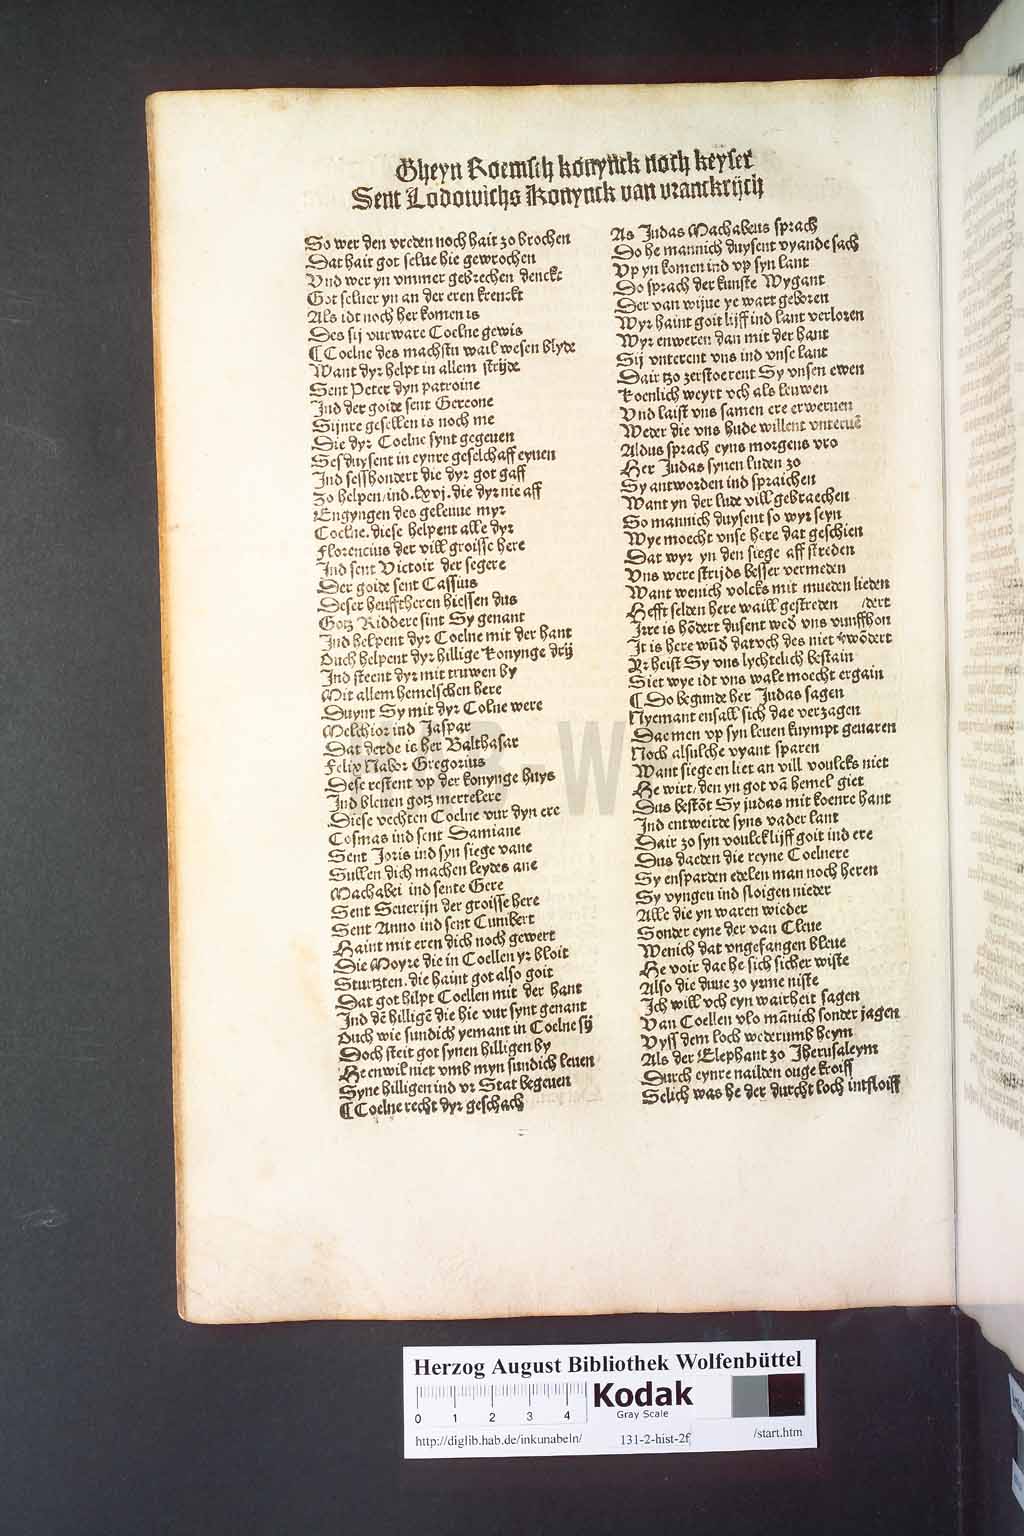 Gheyn Roemsch konynck noch keyser
Sent Lodowichs Konynck van vranckrijch
So wer den vreden noch hait zo brochen
Dat hait got selue hie gewrochen
Vnd wer yn vmmer gebrechen denckt
Got seluer yn an der eren krenckt
Als idt noch her komen is
Des sij vurware Coelne gewis
¶ Coelne des machstu wail wesen blyde
Want dyr helpt in allem strijde
Sent Peter dyn patroine
Jnd der goide sent Gereone
Sijnre gesellen is noch me
Die dyr Coelne synt gegeuen
Sesduysent in eynre geselchaff eynen
Jnd sesshondert die dyr got gaff
Zo helpen/ind .lxvj. die dyr nie aff
Engyngen des geleuue myr
Coelne. diese helpent alle dyr
Florencius der vill groisse here
Jnd sent Victoir der segere
Der goide sent Cassius
Deser heufftheren hiessen dus
Gotz Riddere sint Sy genant
Jnd helpent dyr Coelne mit der hant
Ouch helpent dyr hillige konynge drij
Jnd steent dyr mit truwen by
Mit allem hemelschen here
Duynt Sy mit dyr Colne were
Melchior ind Jaspar
Dat derde is her Balthasar
Felix Nabor Gregorius
Dese restent vp der konynge huys
Jnd bleuen gotz mertelere
Diese vechten Coelne vur dyn ere
Cosmas ind sent Damiane
Sent Joris ind syn siege vane
Sullen dich machen leydes ane
Machabei ind sente Gere
Sent Seuerijn der groisse here
Sent Anno ind sent Cunibert
Haint mit eren dich noch gewert
Die Moyre die in Coellen yr bloit
Sturtzten. die haint got also goit
Dat got hilpt Coellen mit der hant
Jnd dē hilligē die hie vur synt genant
Ouch wie sundich yemant in Coelne sij
Doch steit got synen hilligen by
He enwil niet vmb myn sundich leuen
Syne hilligen ind vr Stat begeuen
¶ Coelne recht dyr geschach
As Judas Machabeus sprach
Do he mannich duysent vyande sach
Vp yn komen ind vp syn lant
Do sprach der kunste Wygant
Der van wijue ye wart geboren
Wyr haint goit lijff ind lant verloren
Wyr enweren dan mit der hant
Sij vnterent vns ind vnse lant
Dair tzo zerstoerent Sy vnsen ewen
Koenlich weyrt vch als leuwen
Vnd laist vns samen ere erweruen
Weder die vns hude willent vnteruē
Aldus sprach eyns morgens vro
Her Judas synen luden zo
Sy antworden ind spraichen
Want yn der lude vill gebraechen
So mannich duysent so wyr seyn
Wye moecht vnse here dat geschien
Dat wyr yn den siege aff streden
Vns were strijds besser vermeden
Want wenich volcks mit mueden lieden
Hefft selden here waill gestreden /dert
Jrre is hōdert dusent wed vns vunffhon
Jt is here wūd dat vch des niet v̄wōdert
Yr heist Sy vns lychtelich bestain
Siet wye idt vns wale moecht ergain
¶ Do begunde her Judas sagen
Nyemant ensall sich dae verzagen
Dae men vp syn leuen kuympt geuaren
Noch alsulche vyant sparen
Want siege en liet an vill voulcks niet
He wirt/den yn got vā hemel giet
Dus bestōt Sy judas mit koenre hant
Jnd entweirde syns vader lant
Dair zo syn voulck lijff goit ind ere
Dus daeden die reyne Coelnere
Sy ensparden edelen man noch heren
Sy vyngen ind sloigen nieder
Alle die yn waren wieder
Sonder eyne der van Cleue
Wenich dat vngefangen bleue
He voir dae he sich sicher wiste
Also die duue zo yrme niste
Jch will vch eyn wairheit sagen
Van Coellen vlo mānich sonder jagen
Vyss dem loch wederumb heym
Als der Elephant zo Jherusaleym
Durch eynre nailden ouge kroiff
Selich was he der durcht loch intsloiff
Herzog August Bibliothek Wolfenbüttel
0 1 2 3 4
Kodak
Gray Scale
http://diglib.hab.de/inkunabeln/ 131-2-hist-2f /start.htm